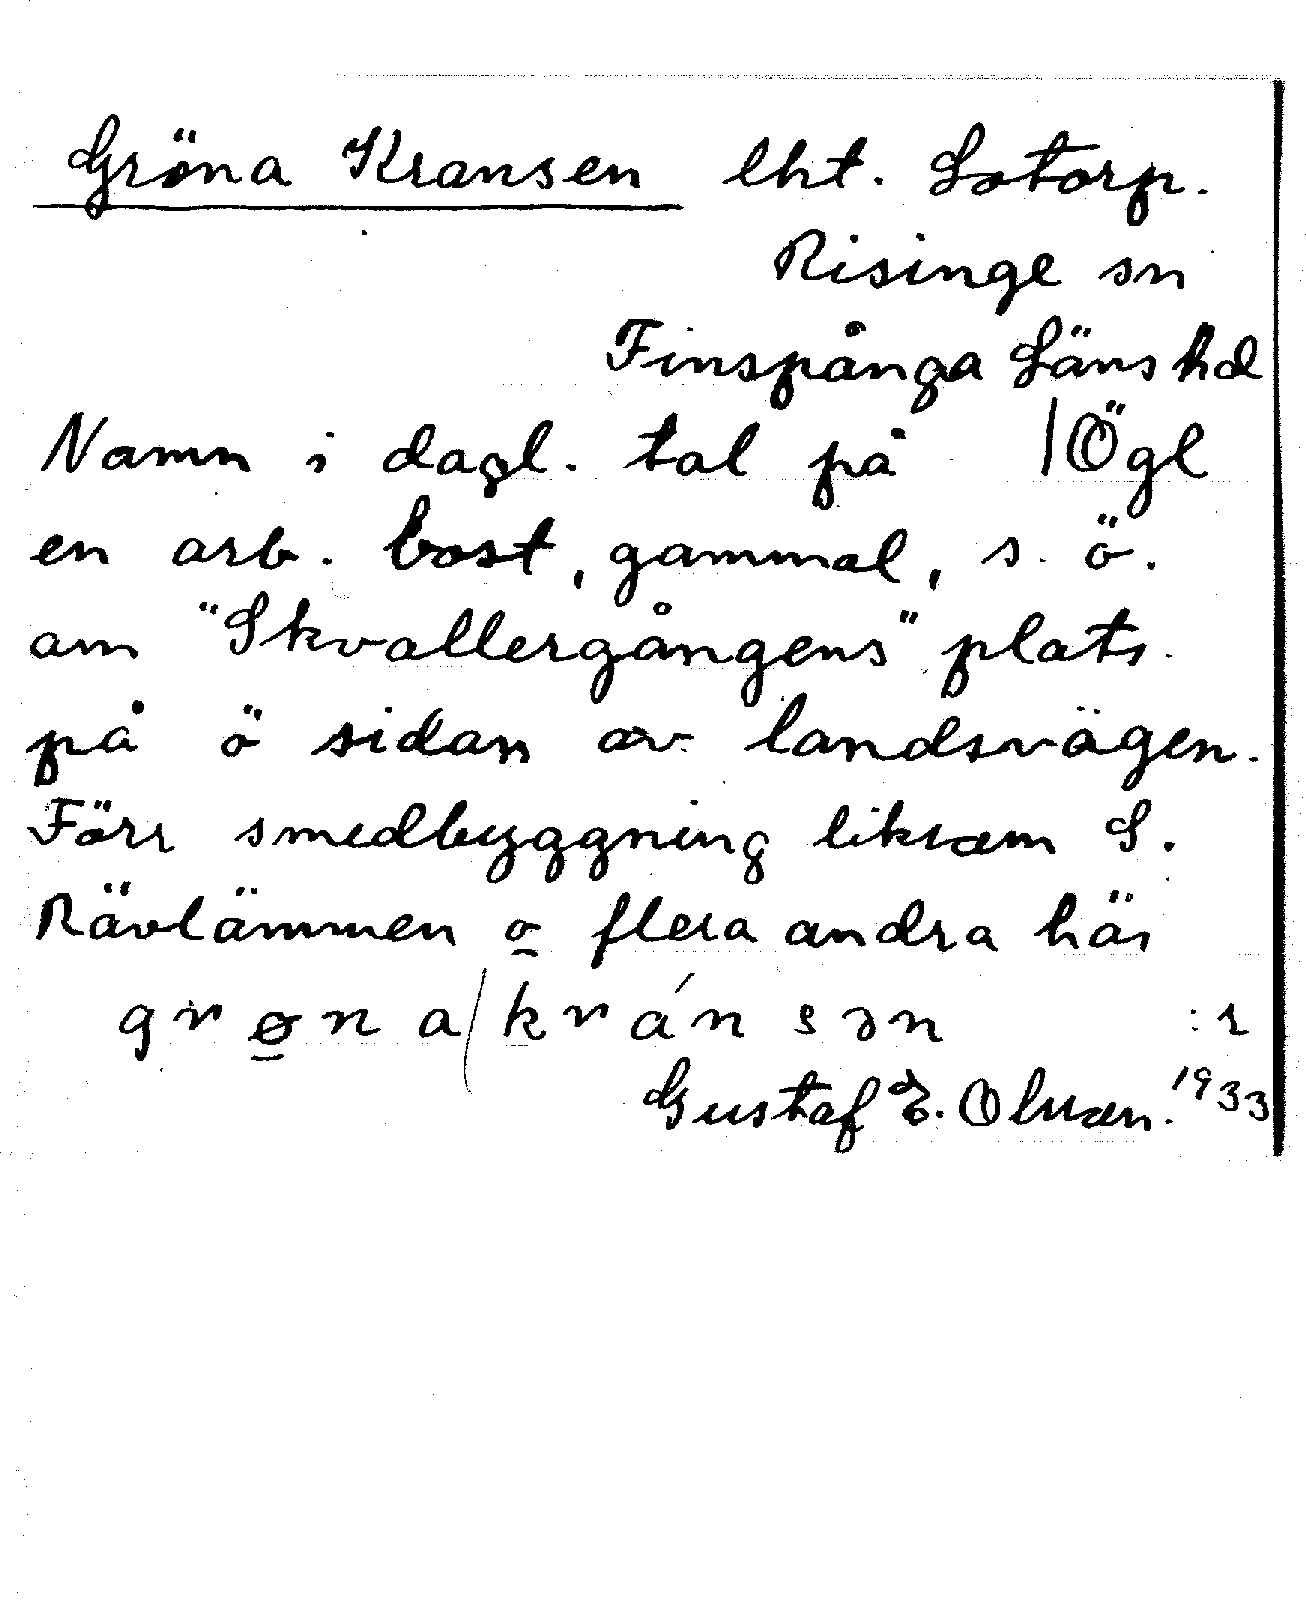 Gröna Kransen lht. Lotorp.
Risinge sn
Finspånga Läns hd
Namn i dagl. tal på /Ögl
en arb. bost, gammal, s. ö.
om "Skvallergångens" plats
på ö sidan av landsvägen.
Förr smedbyggning liksom S.
Rävlämmen o flera andra här
grøna/kránsən :r
Gustaf E. Olsson. 1933